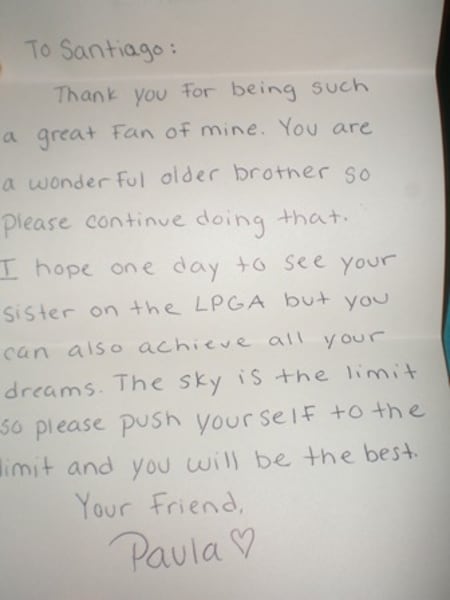 To Santiago:
Thank you for being such
a great fan of mine. You are
a wonderful older brother so
please continue doing that.
I hope one day to see your
sister on the LPGA but you
can also achieve all your
dreams. The sky is the limit
so please push yourself to the
limit and you will be the best.
Your friend,
Paula♡